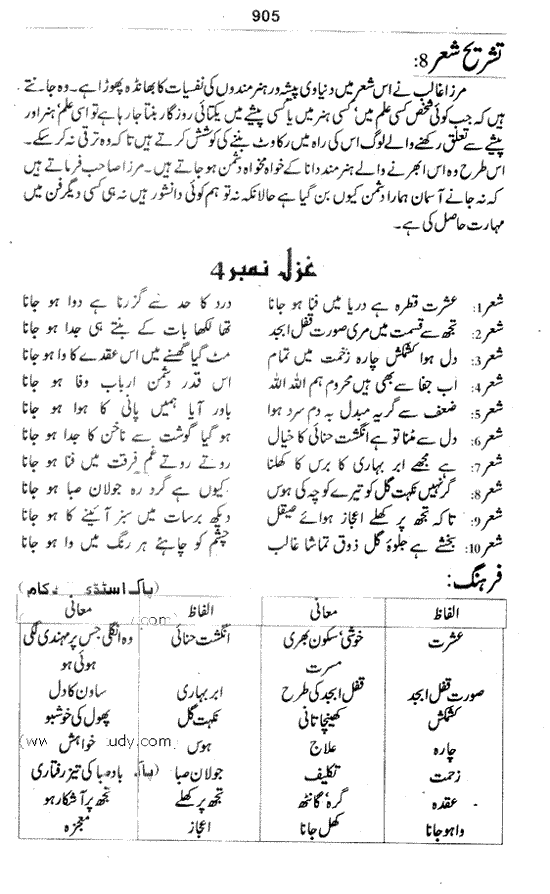 905
تشریح شعر 8:
مرزا غالب نے اس شعر میں دنیاوی پیشہ ور ہنر مندوں کی نفسیات کا بھانڈہ پھوڑا ہے۔ وہ جانتے
ہیں کہ جب کوئی شخص کسی علم میں، کسی ہنر میں یا کسی پیشے میں یکتائی روزگار بنتا جا رہا ہے تو اسی علم، ہنر اور
پیشے سے تعلق رکھنے والے لوگ اس کی راہ میں رکاوٹ بننے کی کوشش کرتے ہیں تاکہ وہ ترقی نہ کر سکے۔
اس طرح وہ اس ابھرنے والے ہنر مند دانا کے خواہ مخواہ دشمن ہو جاتے ہیں۔ مرزا صاحب فرماتے ہیں
کہ نہ جانے آسمان ہمارا دشمن کیوں بن گیا ہے حالانکہ نہ تو ہم کوئی دانشور ہیں نہ ہی کسی دیگر فن میں
مہارت حاصل کی ہے۔
غزل نمبر 4
شعر 1: عشرت قطرہ ہے دریا میں فنا ہو جانا درد کا حد سے گزرنا ہے دوا ہو جانا
شعر 2: تجھ سے قسمت میں مری صورت قفل ابجد تھا لکھا بات کے بنتے ہی جدا ہو جانا
شعر 3: دل ہوا کشمکش چارہ زحمت میں تمام مٹ گیا گھسنے میں اس عقدے کا وا ہو جانا
شعر 4: اب جفا سے بھی ہیں محروم ہم اللہ اللہ اس قدر دشمن ارباب وفا ہو جانا
شعر 5: ضعف سے گریہ مبدل بہ دم سرد ہوا باور آیا ہمیں پانی کا ہوا ہو جانا
شعر 6: دل سے مٹنا تو ہے انگشت حنائی کا خیال ہو گیا گوشت سے ناخن کا جدا ہو جانا
شعر 7: ہے مجھے ابر بہاری کا برس کا کھلنا روتے روتے غم فرقت میں فنا ہو جانا
شعر 8: گر نہیں نکہت گل کو تیرے کوچہ کی ہوس کیوں ہے گرد رہ جولان صبا ہو جانا
شعر 9: تاکہ تجھ پر کھلے اعجاز ہوائے صیقل دیکھ برسات میں سبز آئینے کا ہو جانا
شعر 10: بخشے ہے جلوۂ گل ذوق تماشا غالب چشم کو چاہئے ہر رنگ میں وا ہو جانا
فرہنگ:
(پاک اسٹڈی کام)
الفاظ معانی الفاظ معانی
عشرت خوشی، سکون بھری انگشت حنائی وہ انگلی جس پر مہندی لگی
مسرت ہوئی ہو
صورت قفل ابجد قفل ابجد کی طرح ابر بہاری ساون کا دل
کشمکش کھینچا تانی نکہت گل پھول کی خوشبو
چارہ علاج ہوس خواہش
زحمت تکلیف جولان صبا باد صبا کی تیز رفتاری
عقدہ گرہ، گانٹھ تجھ پر کھلے تجھ پر آشکار ہو
وا ہو جانا کھل جانا اعجاز معجزہ